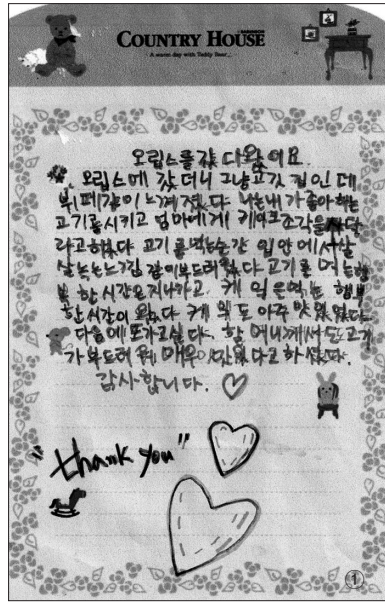 COUNTRY HOUSE
A warm day with Teddy Bear...
오립스를 갔다왔어요.
오립스에 갔더니 그냥 고깃집인데
뷔페같이 느껴졌다. 나는 내가 좋아하는
고기를 시키고 엄마에게 케이크 조각을 사달
라고 하였다 고기를 먹는 순간 입 안에서 살
살 녹는 느낌 같이 부드러웠다 고기를 먹는 행
복한 시간은 지나가고, 케익을 먹는 행복
한 시간이 왔다 케익도 아주 맛있었다.
다음에 또 가고 싶다. 할머니께서도 고기
가 부드러워 매우 맛있었다고 하셨다.
감사합니다. ♡
"thank you"
1